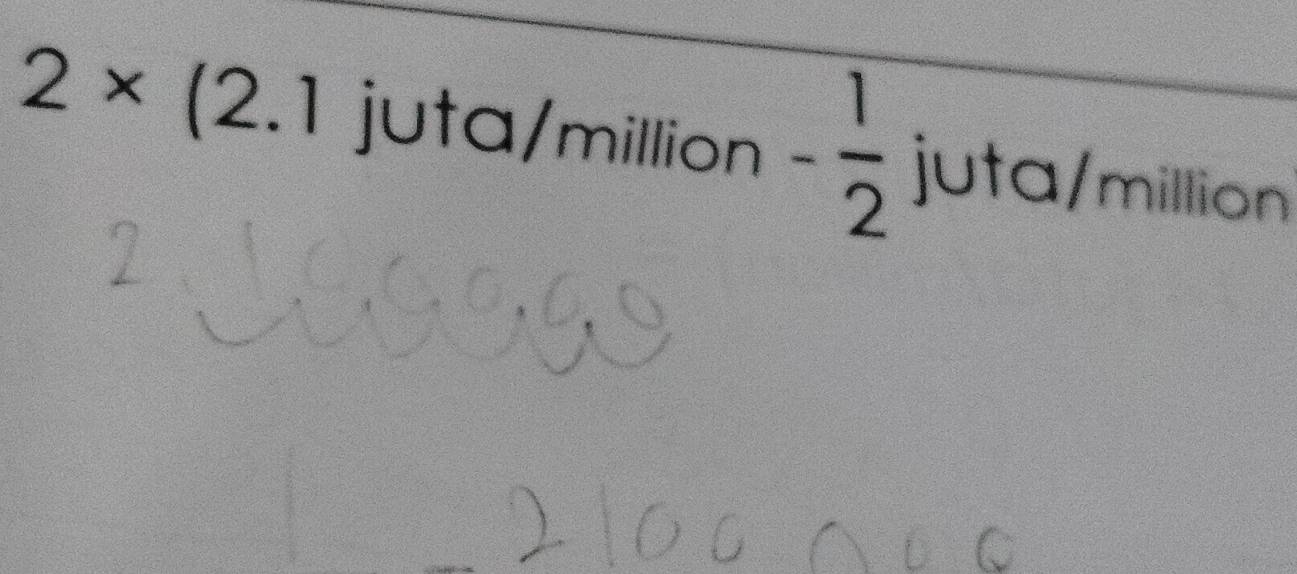 2 × (2.1 juta/million - 1/2 juta/million
2.100000
2100000